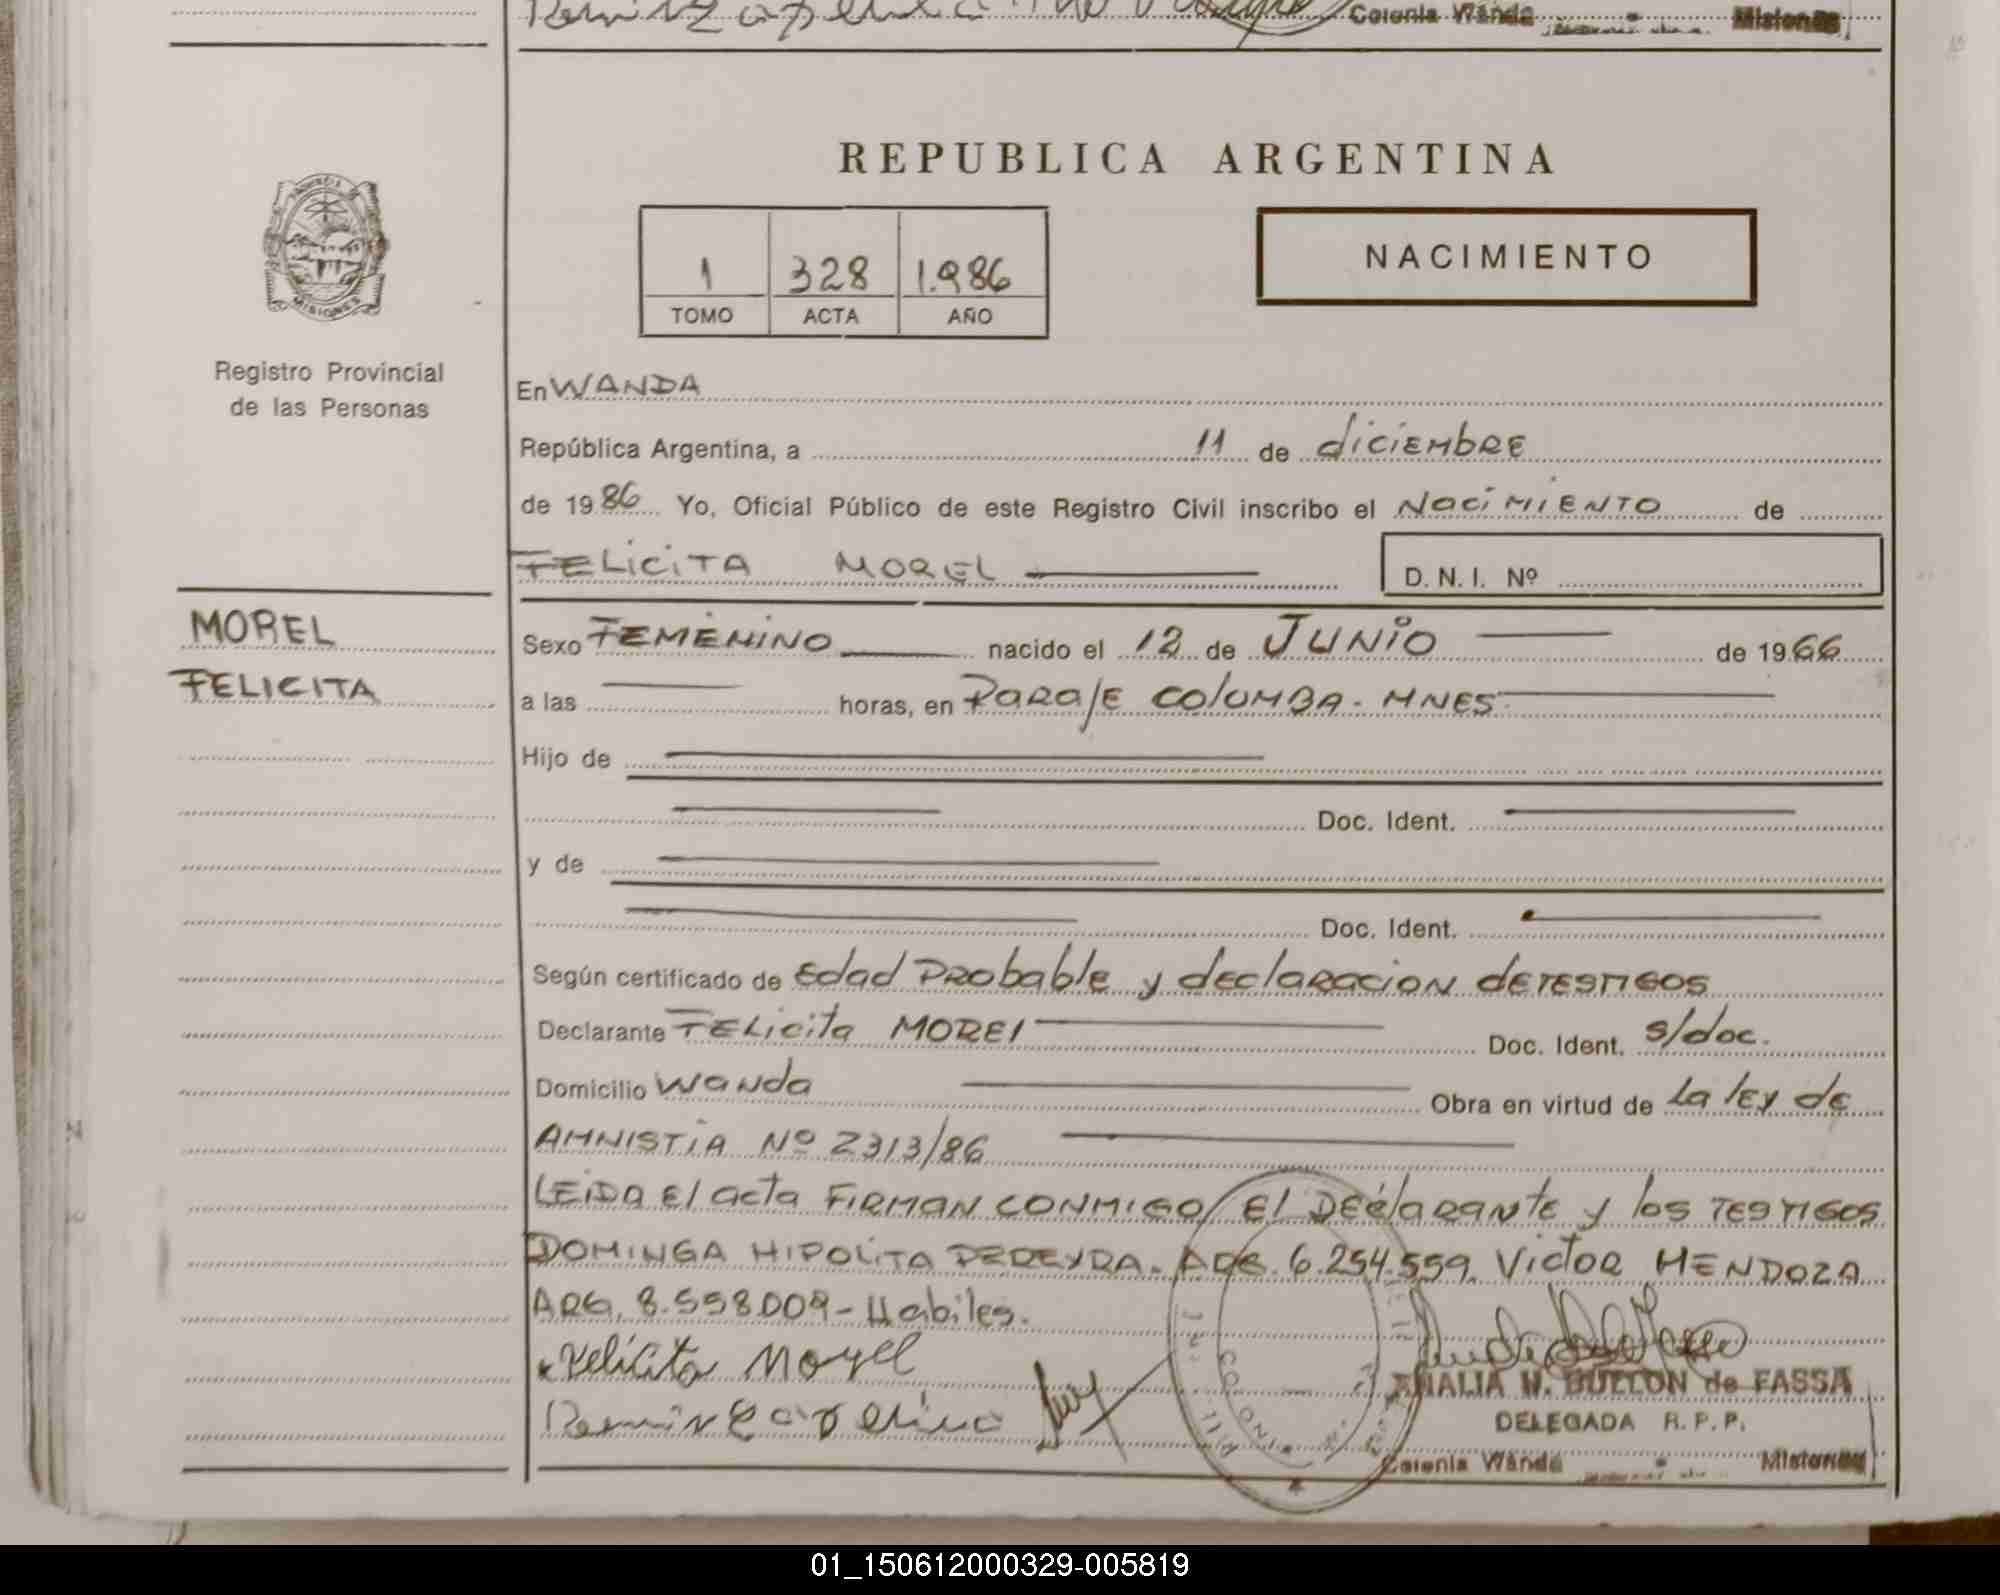 Colonia Wanda Misiones
REPUBLICA ARGENTINA
PROVINCIA DE MISIONES
1 328 1.986
TOMO ACTA AÑO
NACIMIENTO
Registro Provincial
de las Personas
En WANDA
República Argentina, a 11 de diciEMbRE
de 1986 Yo, Oficial Público de este Registro Civil inscribo el NaciMIENTO de
FELICITA MOREL D.N.I. Nº
MOREL
FELICITA
Sexo FEMENINO nacido el 12 de JUNIO de 1966
a las horas, en PARAJE COLUMBA. MNES
Hijo de
Doc. Ident.
y de
Doc. Ident.
Según certificado de Edad PRobable y declARACION dETESTIGOS
Declarante FELicita MOREl Doc. Ident. s/doc.
Domicilio WaNda Obra en virtud de la lEy dE
AMNISTIA Nº 2313/86
LEIDA El acta FIRMAN CONMIGO El DEclaRANtE y los TESTIGOS
DOMINGA HIPOLITA PEREYRA. ARG. 6.254.559. VictOR MENDOZA
ARG. 8.558.009 - Habiles.
Felicita Morel
ANALIA N. de FASSA
DELEGADA R.P.P.
Colonia Wanda Misiones
01_150612000329-005819